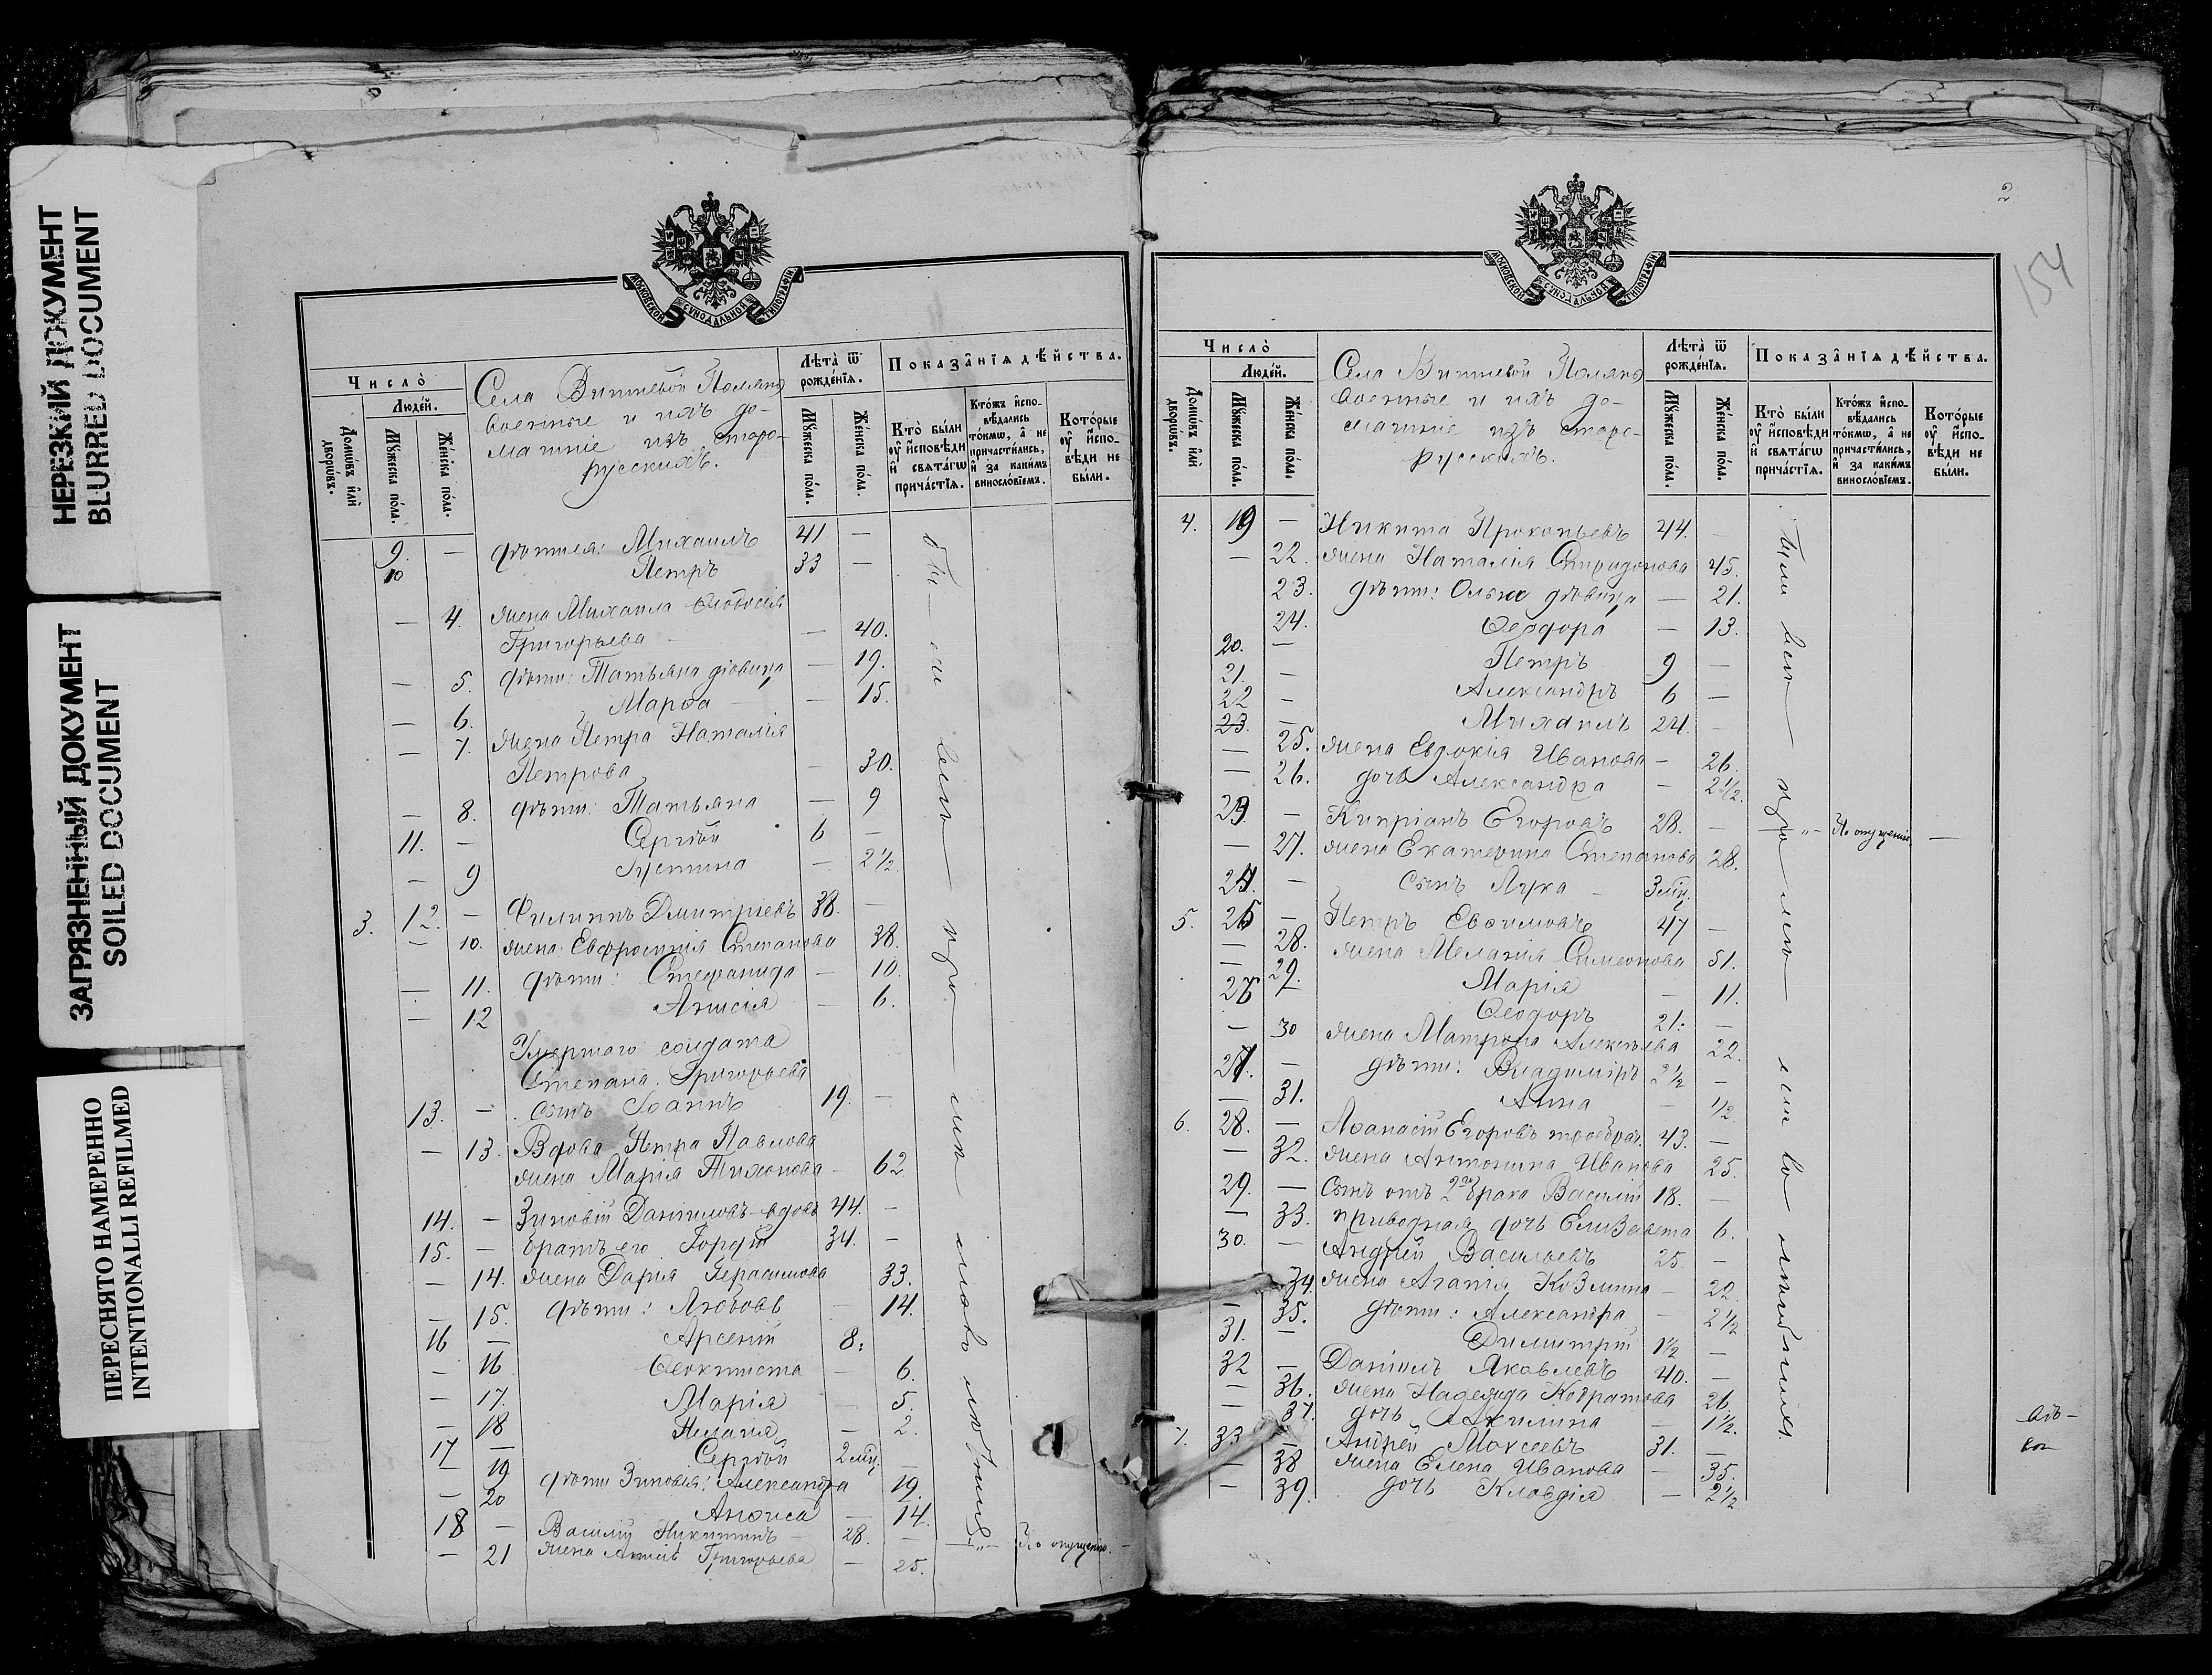 НЕРЕЗКИЙ ДОКУМЕНТ
BLURRED DOCUMENT
ЗАГРЯЗНЕННЫЙ ДОКУМЕНТ
SOILED DOCUMENT
ПЕРЕСНЯТО НАМЕРЕННО
INTENTIONALLI REFILMED
МОСКОВСКОЙ СѴНОДАЛЬНОЙ ТИПОГРАФІИ
Число̀
Людéй.
Домѡ́въ и҆лѝ дворѡ́въ.
Мꙋ́жеска по́ла.
Же́нска по́ла.
Села Вишневой Поляны
военные и ихъ до-
машніе изъ старо-
русскихъ.
Лѣта̀ ѿ рожде́нїѧ.
Мꙋ́жеска по́ла.
Же́нска по́ла.
Показа̑нїѧ дѣ́йства.
Кто̀ бы́ли оу҆ и҆спо́вѣди и҆ свѧта́гѡ прича́стїѧ.
Кто́жъ и҆спо-вѣ́дались то́кмѡ, а҆ не причасти́лись, и҆ за каки́мъ винослóвїемъ.
Кото́рые оу҆ и҆спо-вѣди не бы́ли.
9. — дѣти ея: Михаилъ 41 —
10 Петръ 33 —
— 4. жена Михаила Ѳеодосія
Григорьева — 40.
— 5. дѣти: Татьяна дѣвица — 19.
— 6. Марѳа — 15.
— 7. жена Петра Наталія
Петрова — 30.
— 8. дѣти: Татьяна — 9
11. — Сергѣй 6 —
— 9 Іустина — 2½.
3. 12. — Филиппъ Димитріевъ 38. —
— 10. жена Евфросинія Степанова 38.
— 11. дѣти: Стефанида — 10.
— 12 Анисія — 6.
Умершаго солдата
Степана Григорьева
13. — сынъ Іоаннъ 19. —
— 13. Вдова Петра Павлова
жена Марія Тихонова — 62
14. — Зиновій Даніиловъ вдовъ 44. —
15. — братъ его Гордій 34. —
— 14. жена Дарія Герасимова 33.
— 15. дѣти: Любовь — 14.
16 — Арсеній 8. —
— 16 Ѳеоктиста — 6.
— 17. Марія — 5.
— 18 Пелагія — 2.
17 — Сергѣй 2 мѣц. —
— 19 дѣти Зиновія: Александра 19.
— 20 Анѳиса — 14.
18 — Василій Никитинъ 28. — —„— По опущенію. —
— 21 жена Анисія Григорьева — 25.
2
154
МОСКОВСКОЙ СѴНОДАЛЬНОЙ ТИПОГРАФІИ
Число̀
Людéй.
Домѡ́въ и҆лѝ дворѡ́въ.
Мꙋ́жеска по́ла.
Же́нска по́ла.
Села Вишневой Поляны
военные и ихъ до-
машніе изъ старо-
русскихъ.
Лѣта̀ ѿ рожде́нїѧ.
Мꙋ́жеска по́ла.
Же́нска по́ла.
Показа̑нїѧ дѣ́йства.
Кто̀ бы́ли оу҆ и҆спо́вѣди и҆ свѧта́гѡ прича́стїѧ.
Кто́жъ и҆спо-вѣ́дались то́кмѡ, а҆ не причасти́лись, и҆ за каки́мъ винослóвїемъ.
Кото́рые оу҆ и҆спо-вѣди не бы́ли.
4. 19 — Никита Прокопьевъ 44. —
— 22. жена Наталія Спиридонова 45.
23. дѣти: Ольга дѣвица — 21.
24. Ѳеодора — 13.
20. — Петръ 9 —
21. — Александръ 6 —
22 — Михаилъ 24. —
23. — 25. жена Евдокія Иванова — 26.
— 26. дочь Александра — 2½.
23. — Кипріанъ Егоровъ 28. — —„— По опущенію —
— 27. жена Екатерина Степанова 28.
24. — сынъ Лука — 3 мѣц.
5. 25 — Петръ Евѳимовъ 47 —
— 28. жена Меланія Симеонова 51.
— 29. Марія — 11.
26 — Ѳеодоръ 21. —
— 30 жена Матрона Алексѣева 22.
27. — дѣти: Владиміръ 2½ —
— 31. Анна — ½
6. 28. — Аѳанасій Егоровъ троебрач. 43. —
— 32. жена Антонина Иванова 25.
29. — сынъ отъ 2го брака Василій 18. —
— 33. приводная дочь Елизавета 6.
30. — Андрей Васильевъ 25. —
34. жена Агаѳія Козмина — 22.
— 35. дѣти: Александра — 2½
31. — Димитрій 1½ —
32 — Даніилъ Яковлевъ 40. —
— 36. жена Надежда Кодратова 26.
— 37. дочь Акилина — 1½.
7. 33 — Андрей Моѵсеевъ 31. —
— 38 жена Елена Иванова — 35.
— 39. дочь Клавдія — 2½